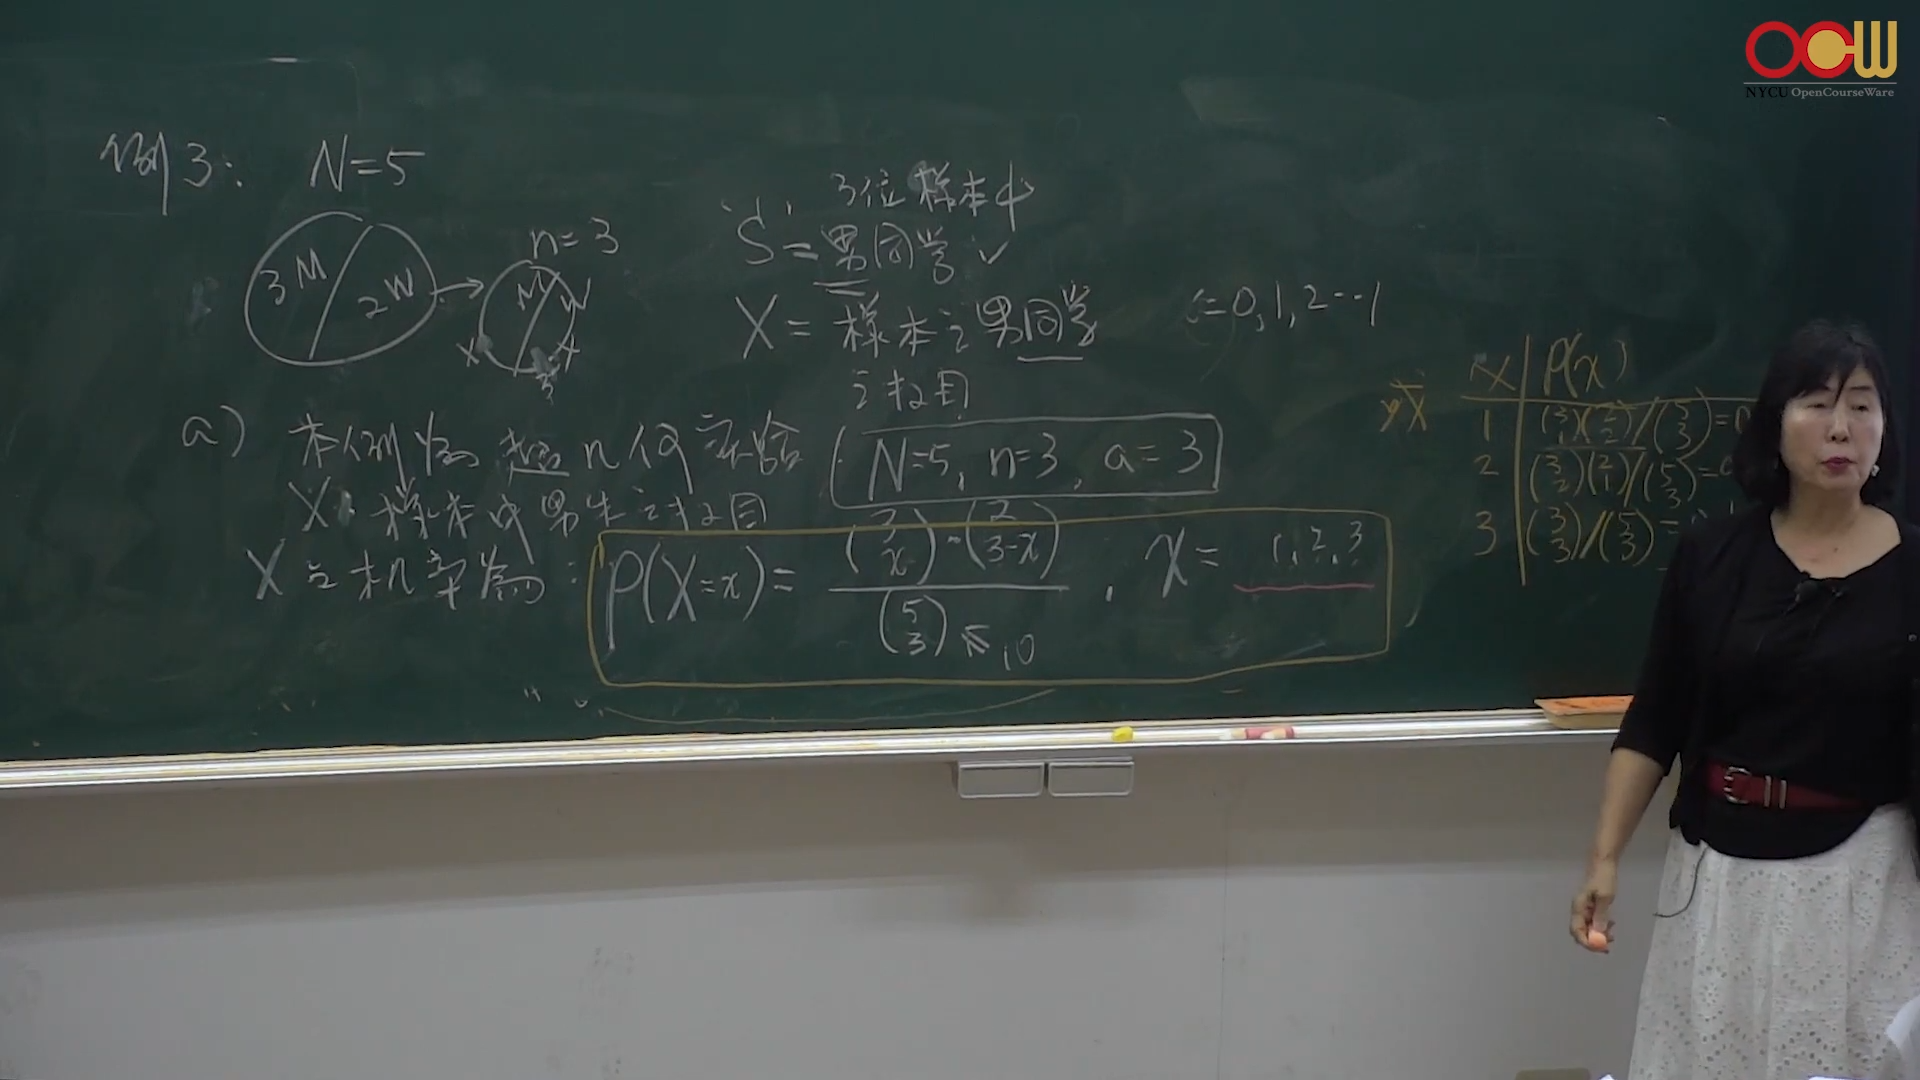 OCW
NYCU OpenCourseWare
例3: N=5
3M 2W → n=3 M W
3位樣本中
"S"=男同學 ✓
X=樣本之男同學
之數目
=0,1,2
a) 本例為超幾何實驗
N=5, n=3, a=3
X:樣本中男生之數目
X之机率為:
P(X=x)= (3 x)·(2 3-x) / (5 3) 10 , x= 1,2,3
或 x P(x)
1 (3 1)(2 2)/(5 3)=0
2 (3 2)(2 1)/(5 3)=
3 (3 3)/(5 3)=